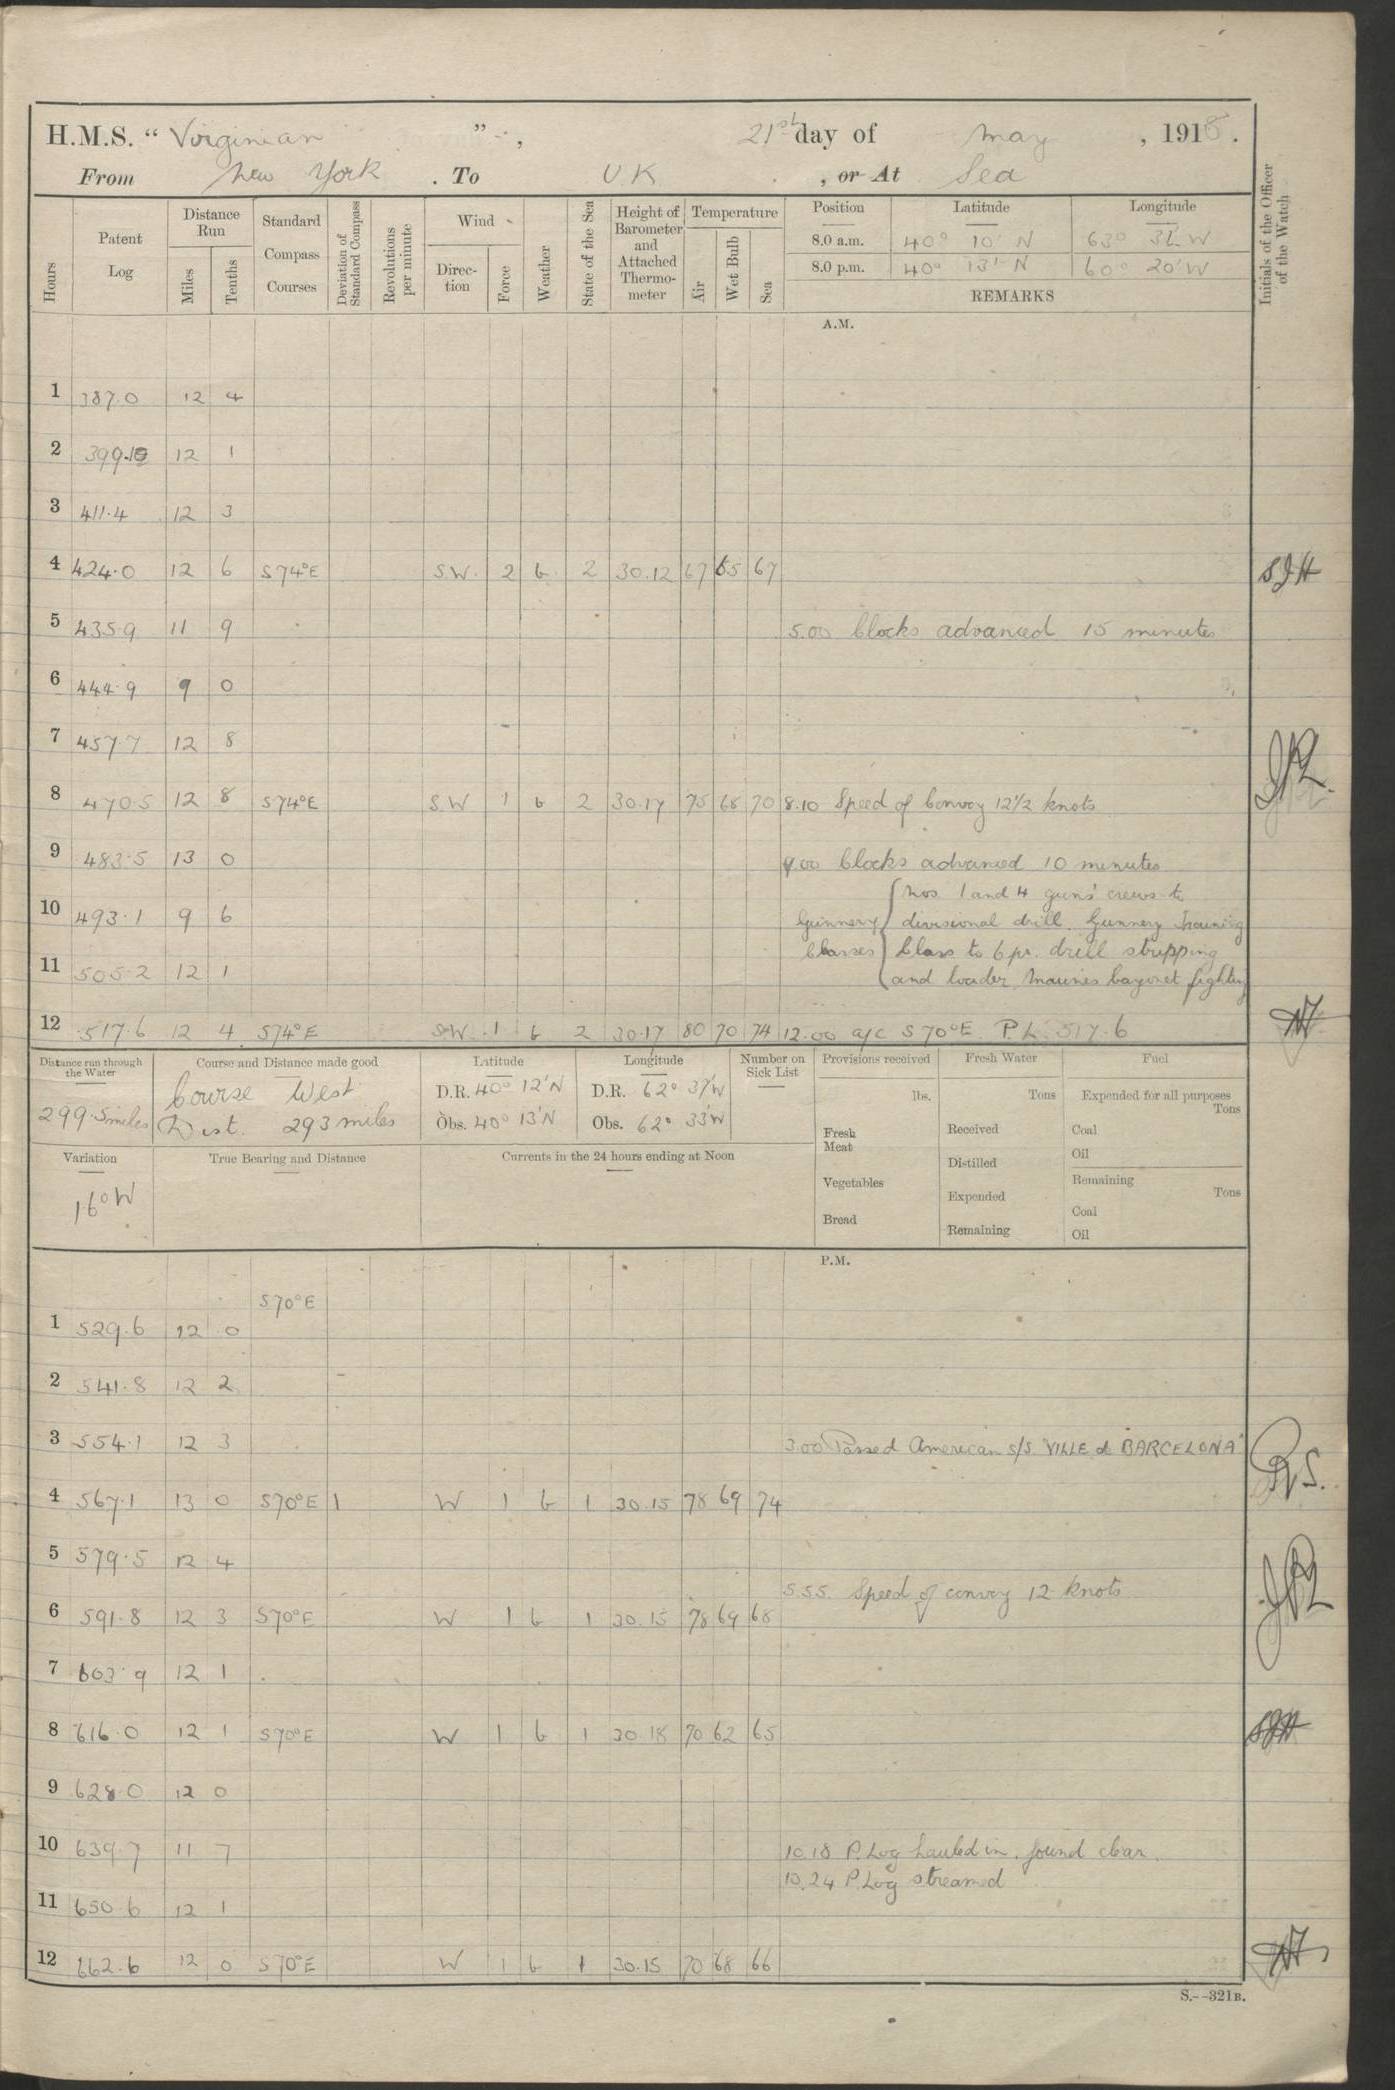 H.M.S. “ Virginian ” , 21st day of May , 1918.
From New York . To U K , or At Sea
Hours
Patent Log
Distance Run
Miles
Tenths
Standard Compass Courses
Deviation of Standard Compass
Revolutions per minute
Wind
Direction
Force
Weather
State of the Sea
Height of Barometer and Attached Thermometer
Temperature
Air
Wet Bulb
Sea
Position Latitude Longitude
8.0 a.m. 40° 10' N 63° 32 W
8.0 p.m. 40° 13' N 60° 20' W
REMARKS
Initials of the Officer of the Watch
A.M.
1 387.0 12 4
2 399.1 12 1
3 411.4 12 3
4 424.0 12 6 S74°E S.W. 2 b 2 30.12 67 65 67 SJH
5 435.9 11 9 5.00 Clocks advanced 15 minutes
6 444.9 9 0
7 457.7 12 8
8 470.5 12 8 S74°E S.W 1 b 2 30.17 75 68 70 8.10 Speed of Convoy 12 1/2 knots
9 483.5 13 0 9.00 Clocks advanced 10 minutes
Nos. 1 and 4 guns' crews to
10 493.1 9 6 Gunnery divisional drill. Gunnery Training
Classes Class to 6 pr. drill stripping
11 505.2 12 1 and loader, Marines bayonet fighting
12 517.6 12 4 S74°E SW 1 b 2 30.17 80 70 74 12.00 a/c S70°E P.L. 517.6
Distance run through the Water
299.5 miles
Course and Distance made good
Course West
Dist. 293 miles
Latitude
D.R. 40° 12' N
Obs. 40° 13' N
Longitude
D.R. 62° 37' W
Obs. 62° 33' W
Number on Sick List
Provisions received
lbs.
Fresh Meat
Vegetables
Bread
Fresh Water
Tons
Received
Distilled
Expended
Remaining
Fuel
Expended for all purposes
Tons
Coal
Oil
Remaining
Tons
Coal
Oil
Variation
16° W
True Bearing and Distance
Currents in the 24 hours ending at Noon
P.M.
S70°E
1 529.6 12 0
2 541.8 12 2
3 554.1 12 3 3.00 Passed American s/s "VILLE de BARCELONA"
4 567.1 13 0 S70°E 1 W 1 b 1 30.15 78 69 74
5 579.5 12 4
5.55. Speed of convoy 12 knots
6 591.8 12 3 S70°E W 1 b 1 30.15 78 69 68
7 603.9 12 1
8 616.0 12 1 S70°E W 1 b 1 30.18 70 62 65 SJH
9 628.0 12 0
10 639.7 11 7 10.18 P. Log hauled in, found clear.
10.24 P. Log streamed
11 650.6 12 1
12 662.6 12 0 S70°E W 1 b 1 30.15 70 68 66
S.--321B.